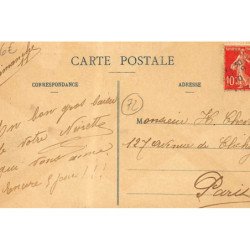 CARTE POSTALE
CORRESPONDANCE
ADRESSE
10
72
Un bon gros baiser
de votre Ninette
qui vous aime
Encore 8 jours!!!
Monsieur H.
127 avenue de Clichy
Paris